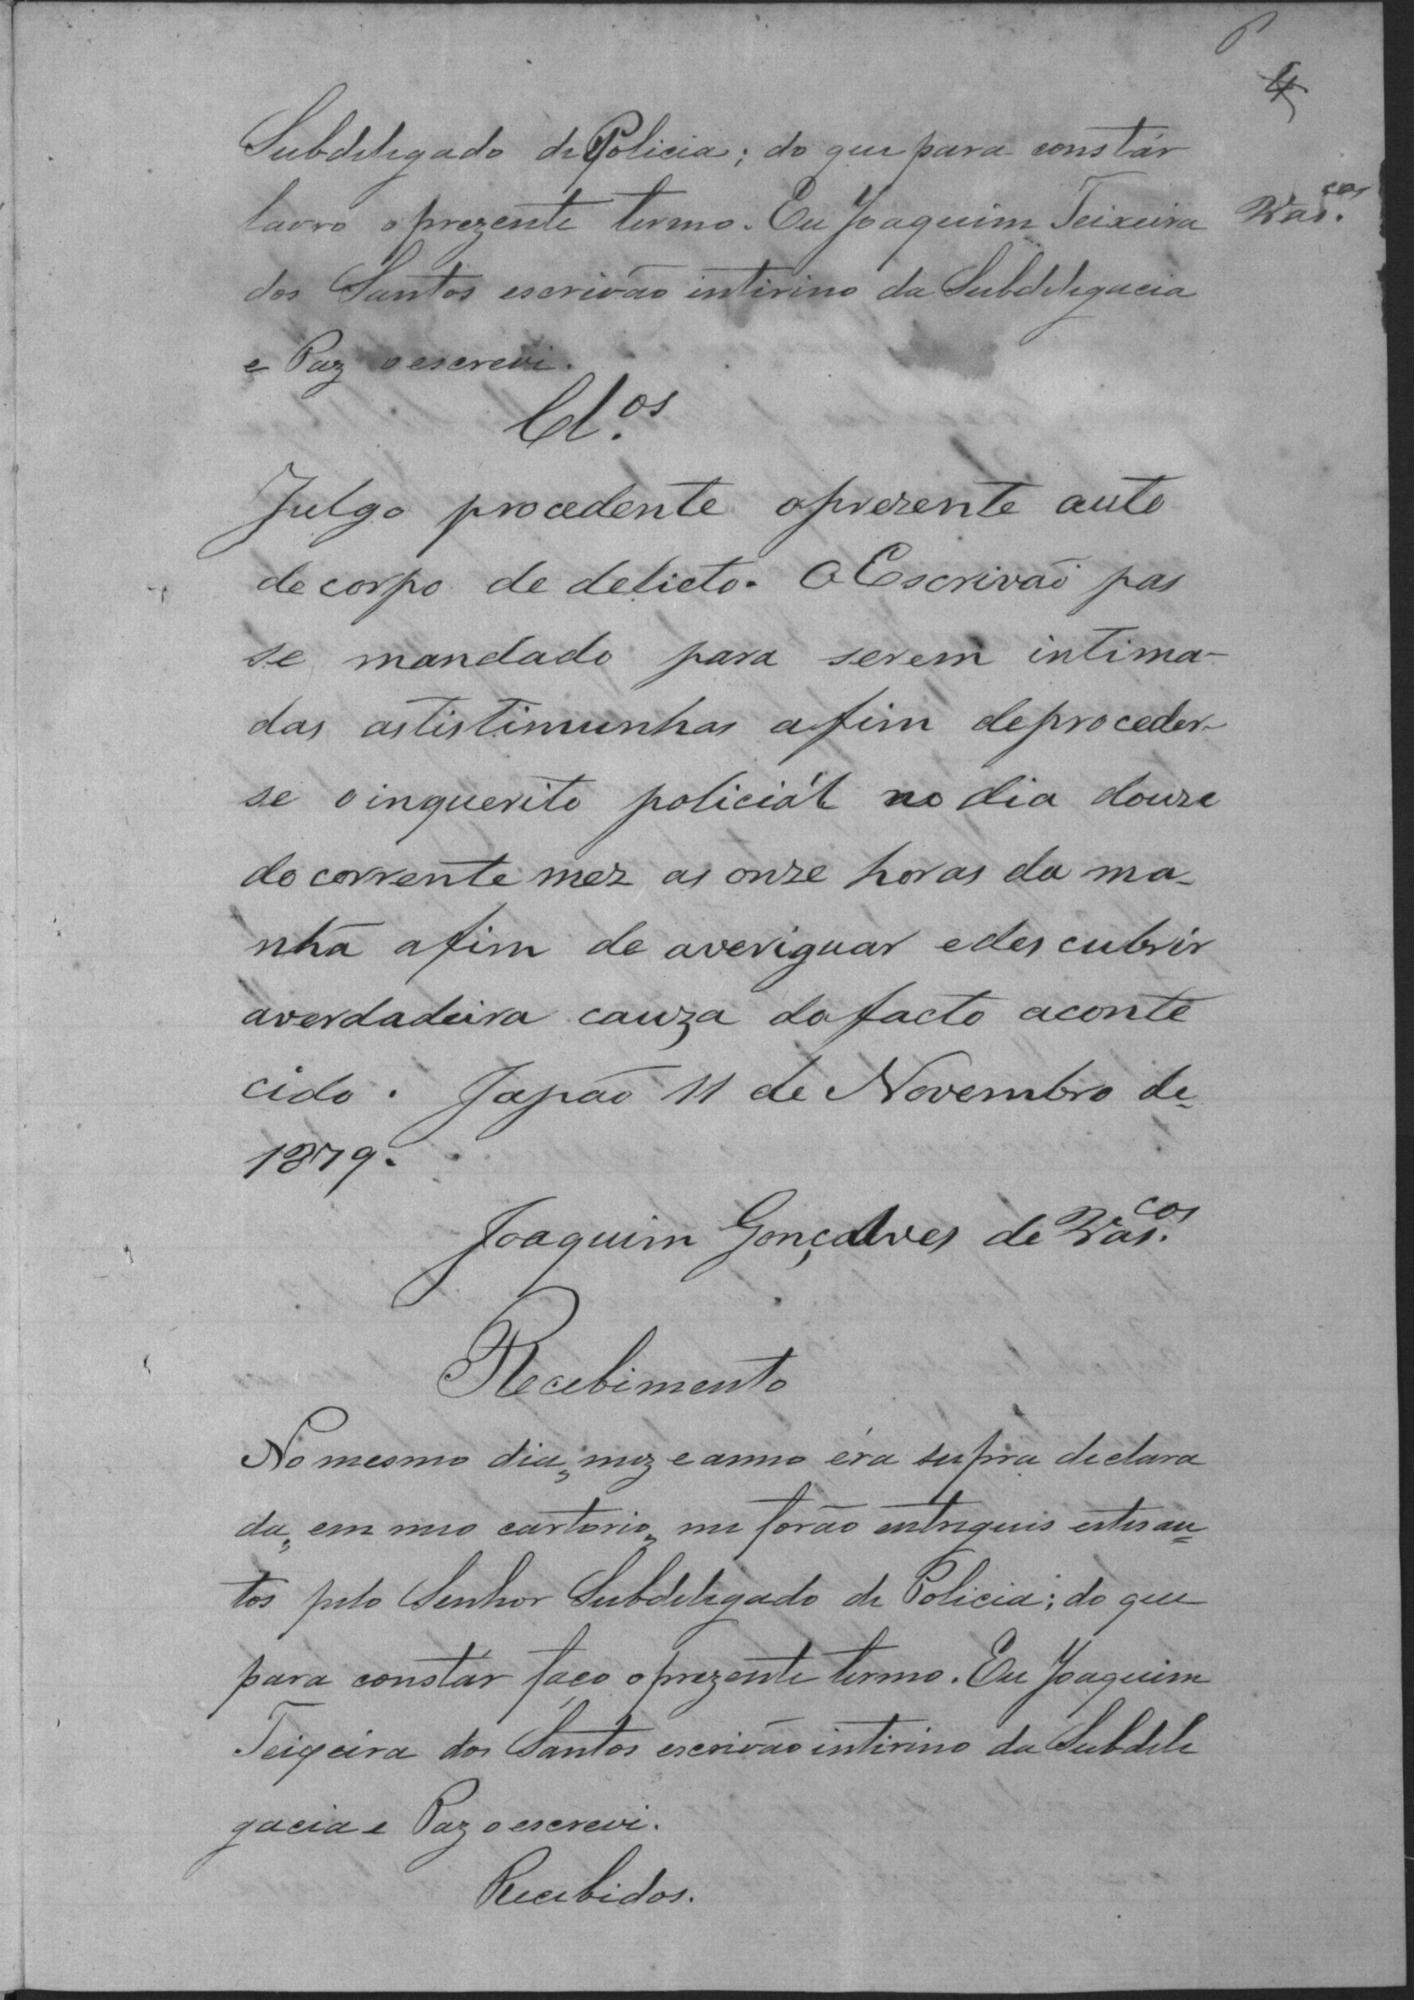 6
4
Vas.cos
Subdelegado de Policia; do que para constár
lavro o prezente termo. Eu Joaquim Teixeira
dos Santos escrivão intirino da Subdelegacia
e Paz o escrevi.
Cl.os
Julgo procedente oprezente auto
de corpo de delicto. O Escrivaõ pas
se mandado para serem intima-
das astistimunhas afim deproceder-
se oinquerito policiál no dia douze
do corrente mez as onze horas da ma-
nhã afim de averiguar edescubrir
averdadeira cauza dofacto aconte
cido. Japão 11 de Novembro de
1879.
Joaquim Gonçalves de Vas.cos
Recebimento
No mesmo dia, mez e anno éra supra declara
da, em meo cartorio, me forão entregues estes au=
tos pelo Senhor Subdelegado de Policia; do que
para constár faço o prezente termo. Eu Joaquim
Teixeira dos Santos escrivão intirino da Subdele
gacia e Paz o escrevi.
Recebidos.